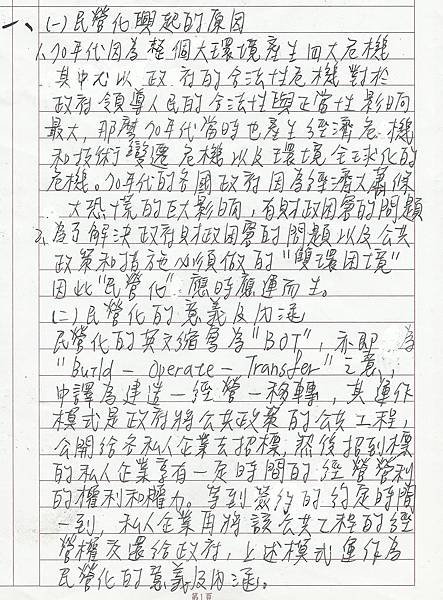 一、(一)民營化興起的原因
1.70年代因為整個大環境產生四大危機
其中尤以政府的合法性危機對於
政府領導人民的合法性與正當性影响
最大,那麼70年代當時也產生經濟危機
和技術變遷危機以及環境全球化的
危機。70年代的各國政府因為經濟大蕭條
大恐慌的巨大影响,有財政困窘的問題
2.為了解決政府財政困窘的問題以及公共
政策和措施必須做的"雙環困境"
因此"民營化"應時應運而生。
(二)民營化的意義及內涵
民營化的英文縮寫為"BOT",亦即為
"Build-Operate-Transfer"之意,
中譯為建造-經營-移轉,其運作
模式是政府將公共政策的公共工程,
公開給各私人企業去招標,然後招到標
的私人企業享有一定時間的經營營利
的權利和權力。等到簽約的約定時間
一到,私人企業再將該公共工程的經
營權交還給政府,上述模式運作為
民營化的意義及內涵。
第1頁